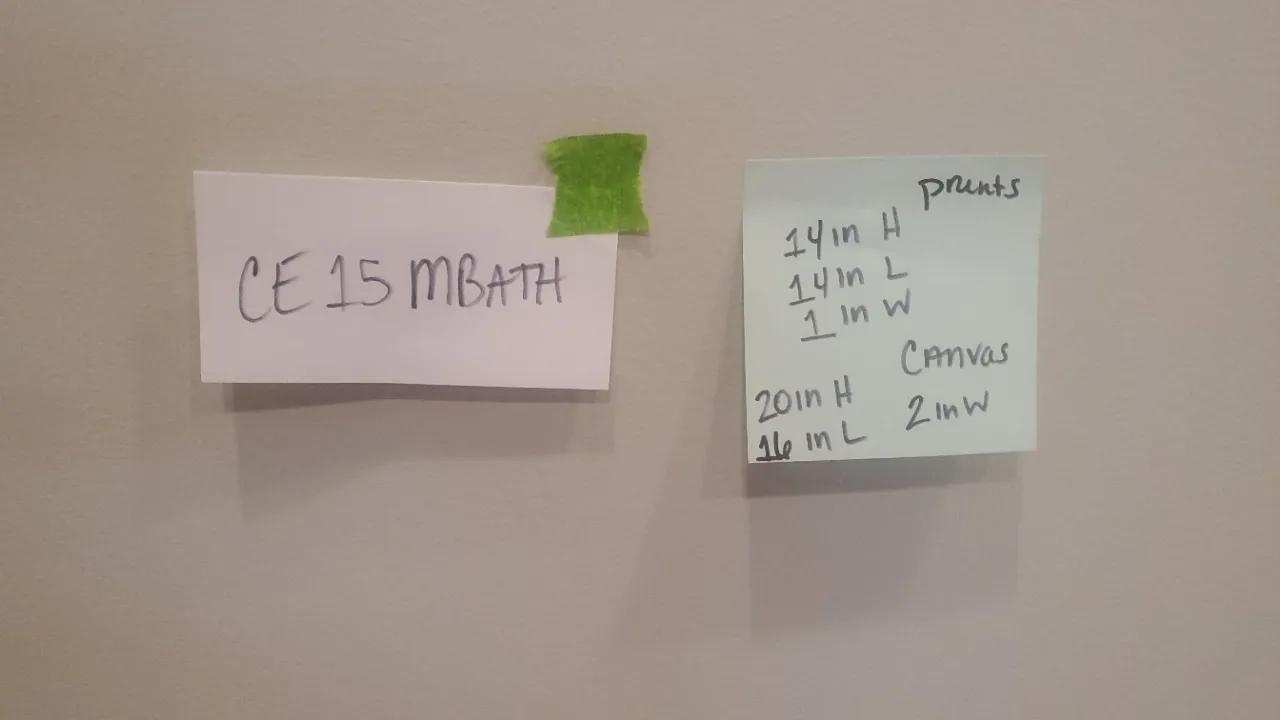 CE 15 MBATH
prints
14 in H
14 in L
1 in W
Canvas
20 in H
2 in W
16 in L